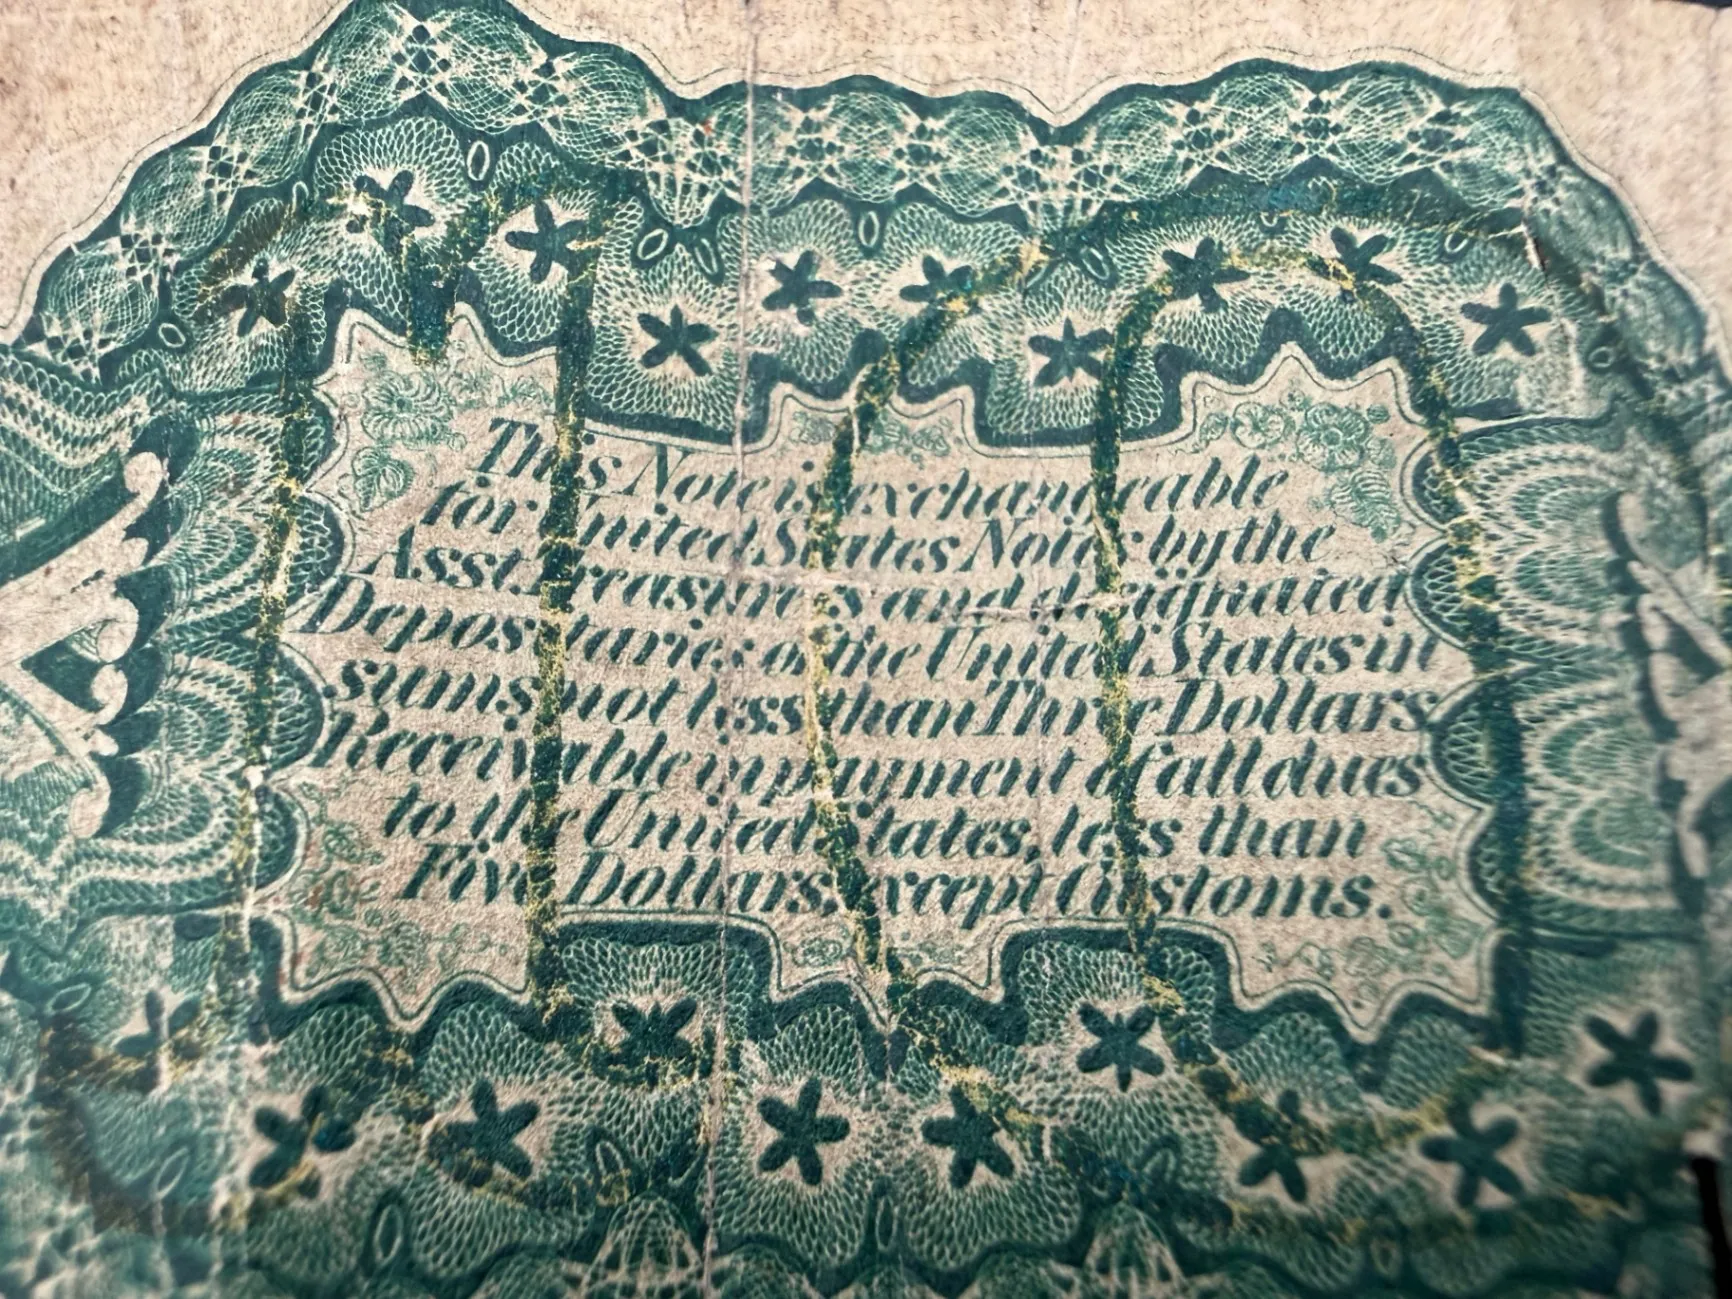 This Note is exchangeable
for United States Notes by the
Asst. Treasurers and designated
Depositaries of the United States in
sums not less than Three Dollars
Receivable in payment of all dues
to the United States, less than
Five Dollars, except Customs.
10